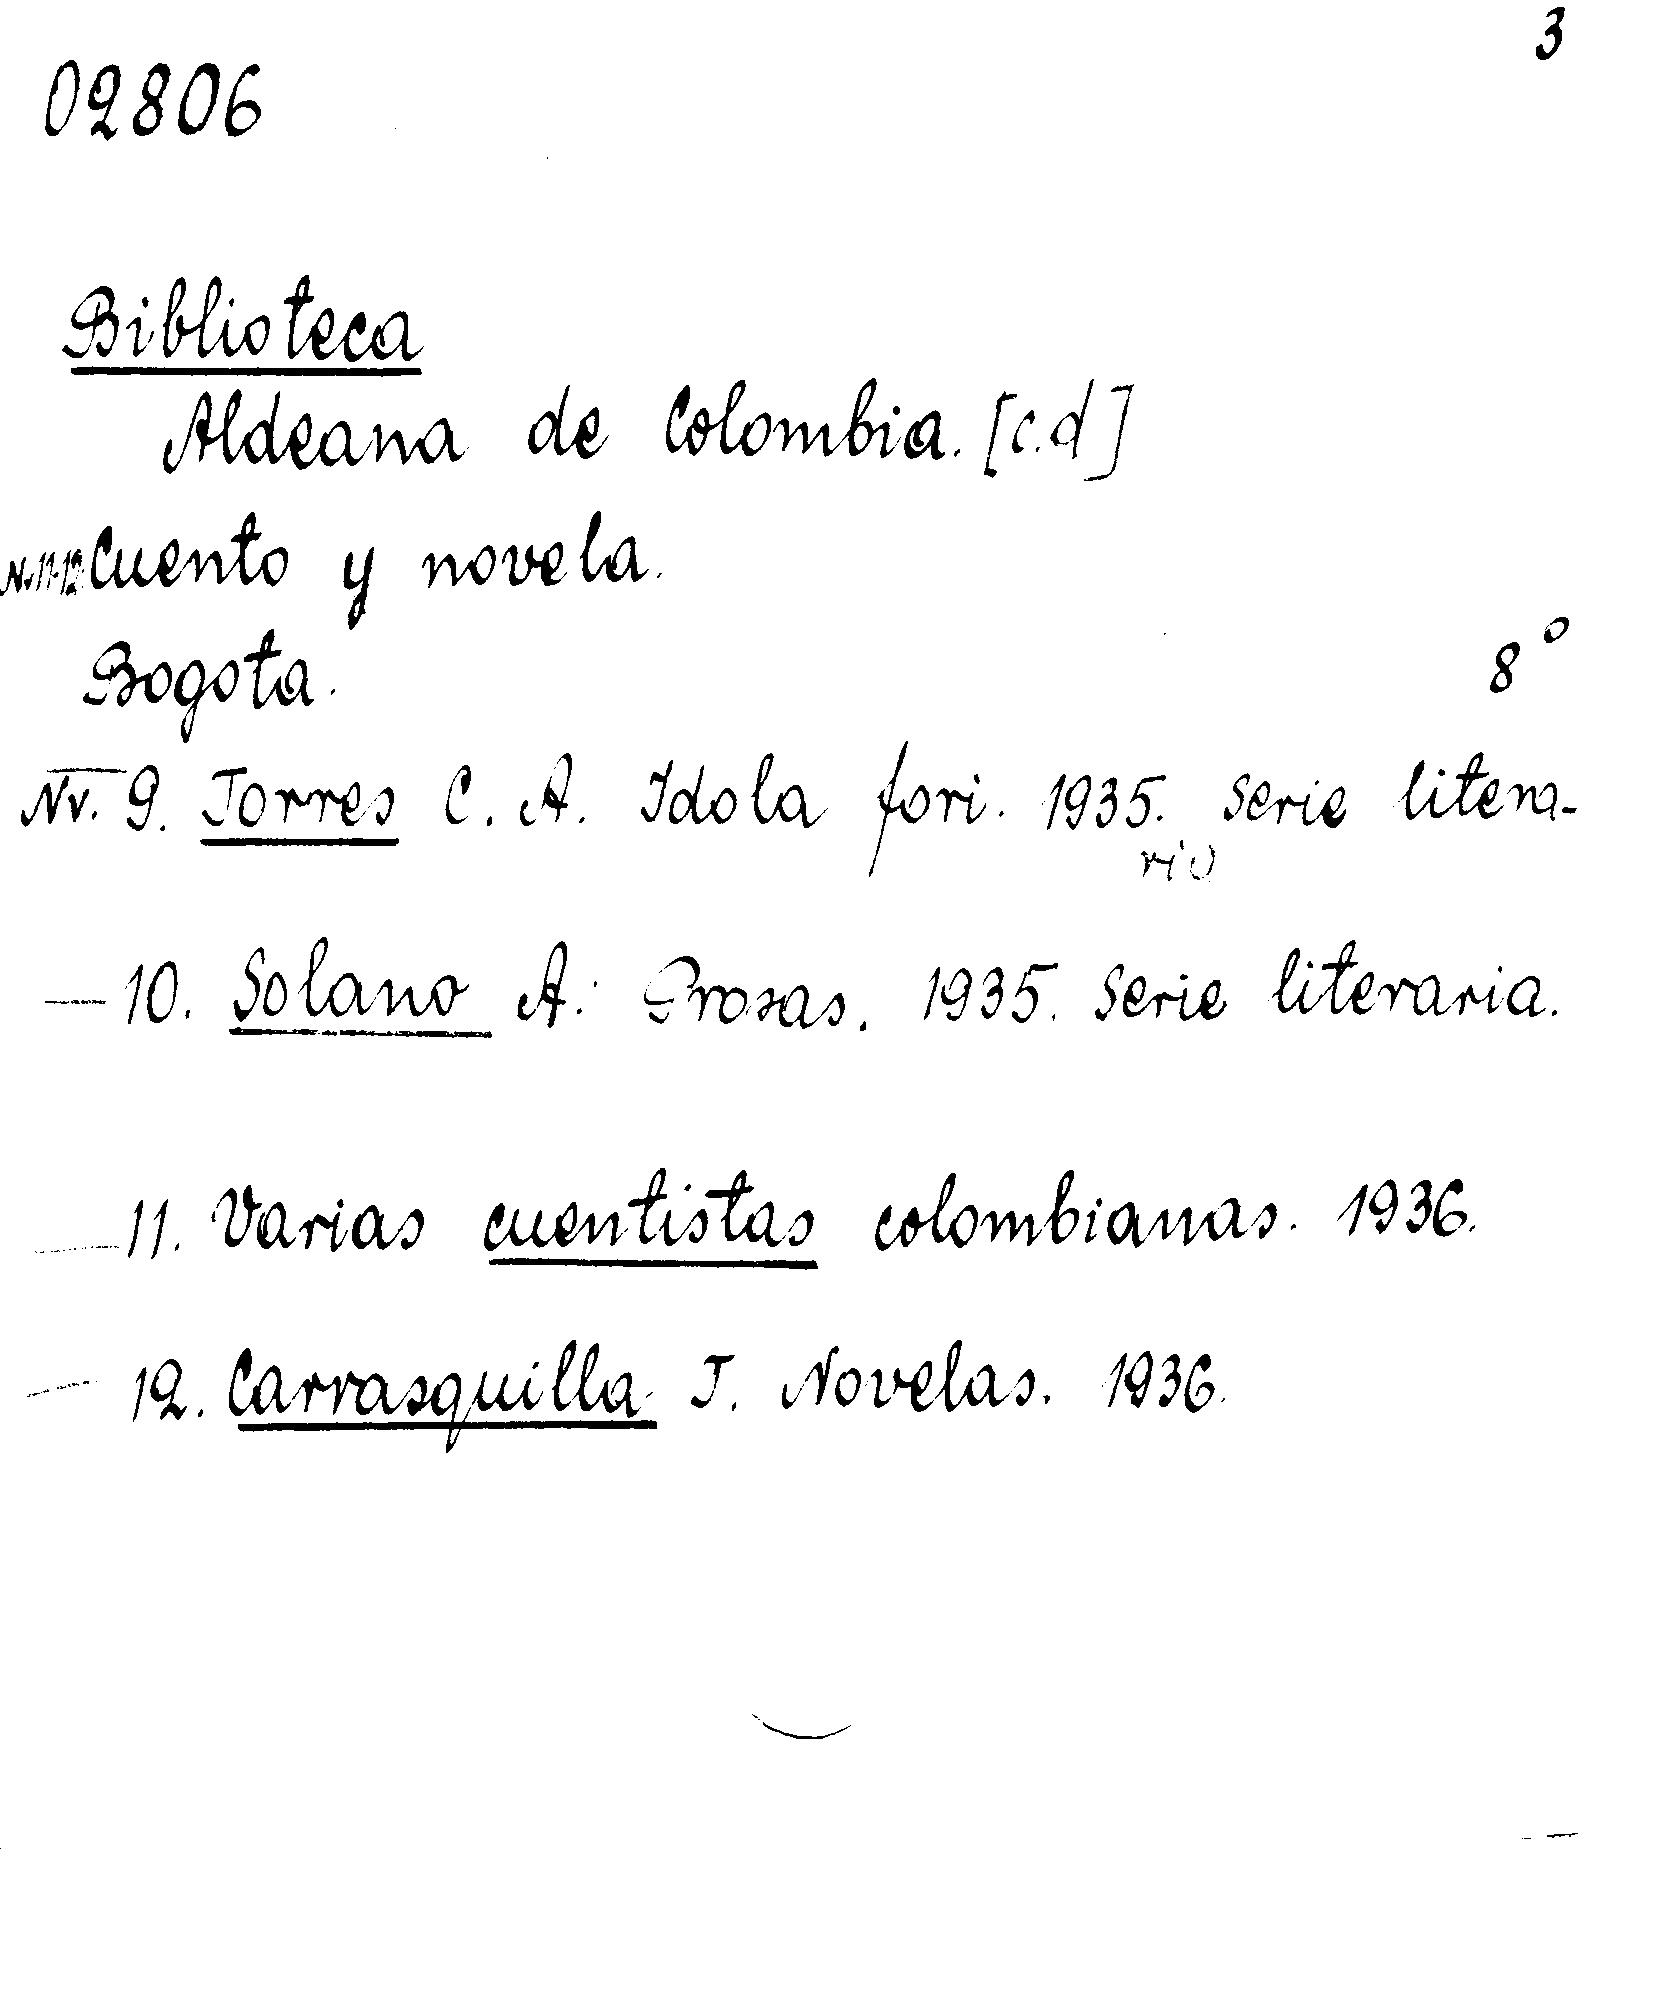 3
02806
Biblioteca
Aldeana de Colombia. [c.d]
Nv.11-12 Cuento y novela.
Bogota. 8°
Nv. 9. Torres C. A. Idola fori. 1935. Serie litera-
ria
— 10. Solano A. Prosas. 1935. Serie literaria.
— 11. Varias cuentistas colombianas. 1936.
— 12. Carrasquilla T. Novelas. 1936.